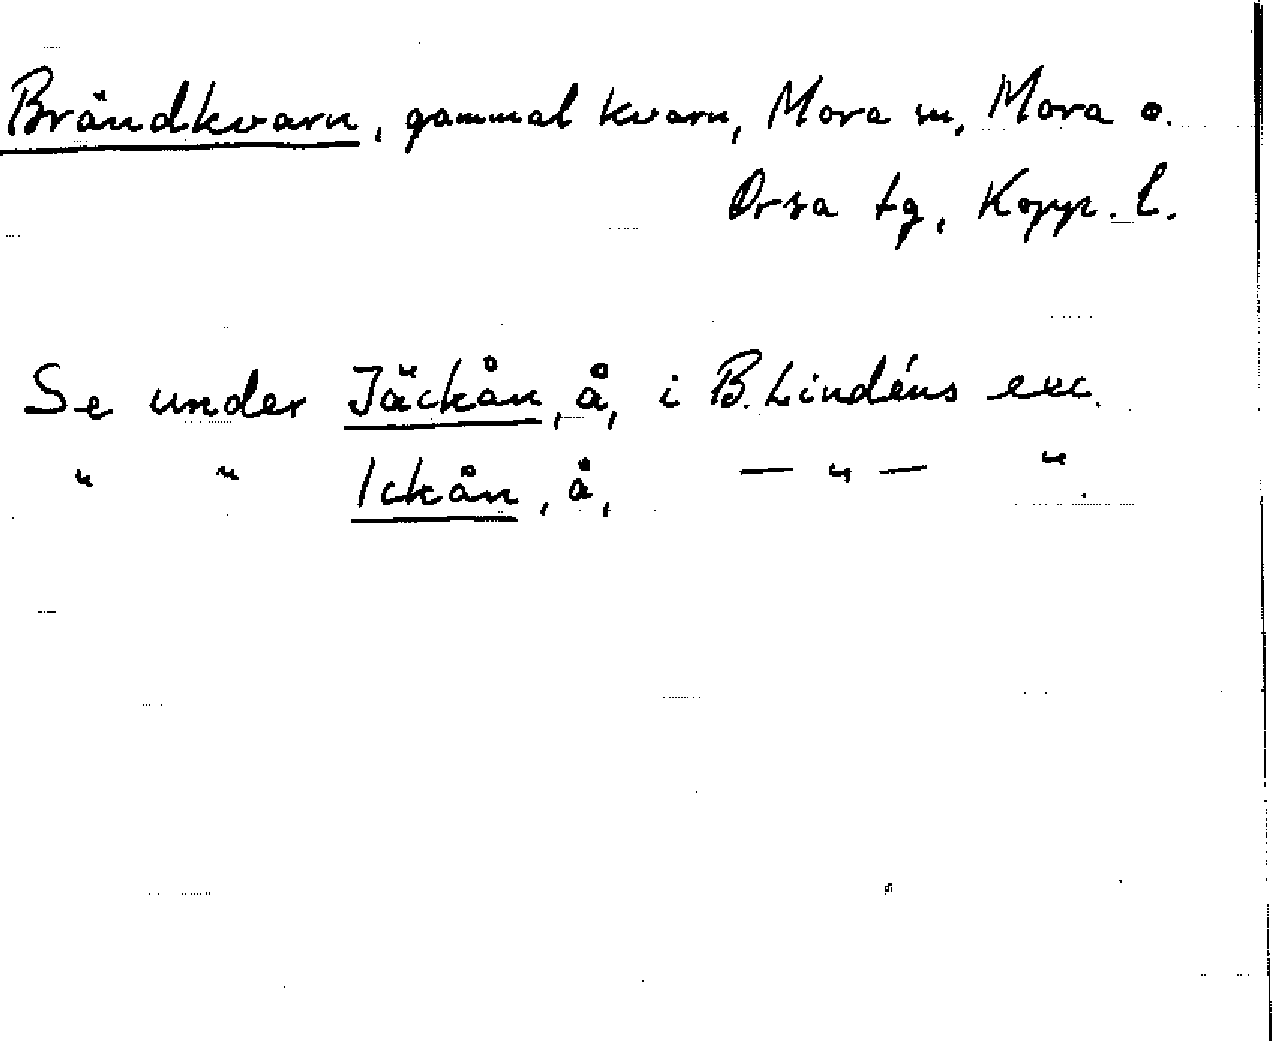 Brändkvarn, gammal kvarn, Mora sn, Mora o.
Orsa tg, Kopp. l.
Se under Jäckån, å, i B. Lindéns exc.
" " Ickån, å, — " — ".